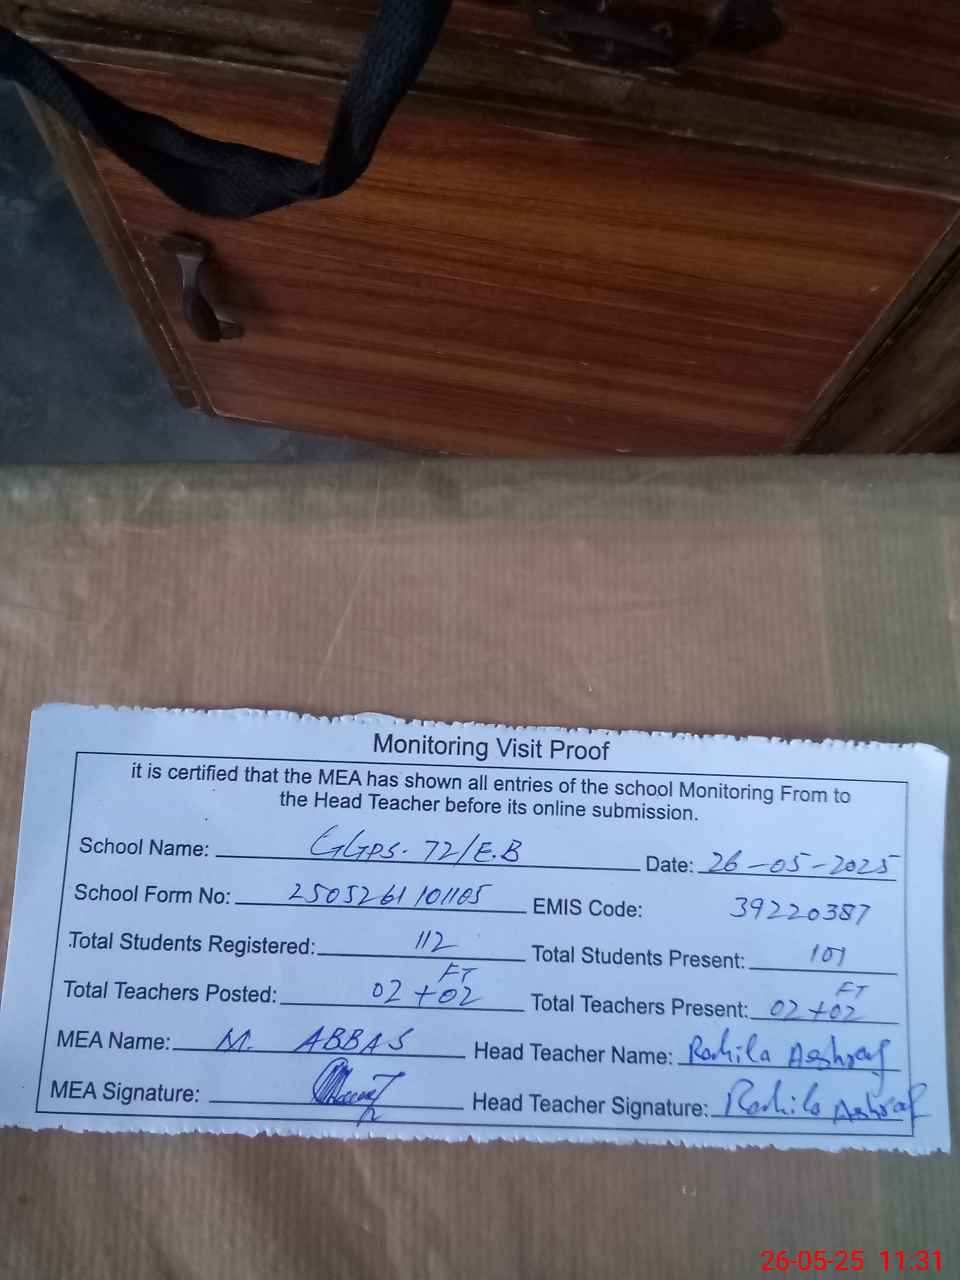 Monitoring Visit Proof
it is certified that the MEA has shown all entries of the school Monitoring From to
the Head Teacher before its online submission.
School Name: GGPS. 72/E.B Date: 26-05-2025
School Form No: 2505261101105 EMIS Code: 39220387
Total Students Registered: 112 Total Students Present: 101
Total Teachers Posted: 02 + 02 FT Total Teachers Present: 02 + 02 FT
MEA Name: M. ABBAS Head Teacher Name: Rahila Ashraf
MEA Signature: Head Teacher Signature: Rahila Ashraf
26-05-25 11:31